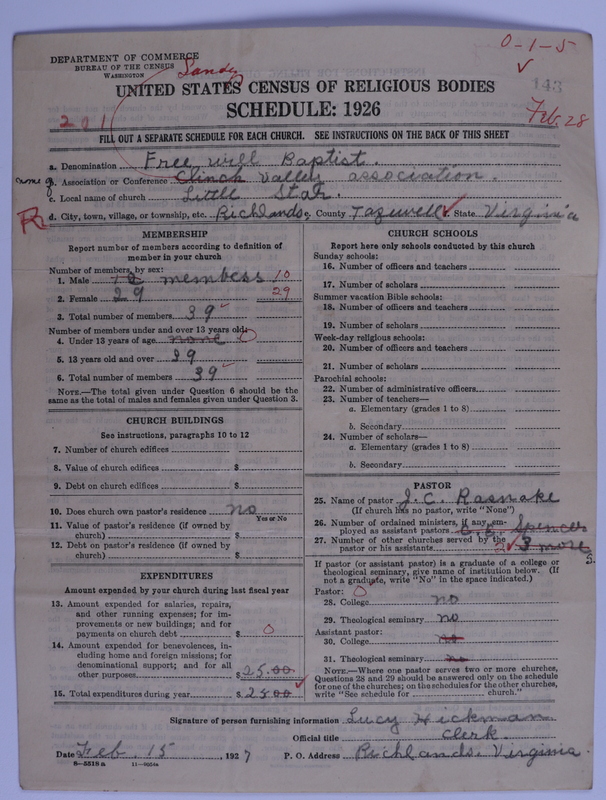 0-1-5
DEPARTMENT OF COMMERCE
BUREAU OF THE CENSUS
WASHINGTON
Sandy
143
UNITED STATES CENSUS OF RELIGIOUS BODIES
SCHEDULE: 1926
Feb. 28
201
FILL OUT A SEPARATE SCHEDULE FOR EACH CHURCH. SEE INSTRUCTIONS ON THE BACK OF THIS SHEET
a. Denomination Free will Baptist.
b. Association or Conference Clinch Valley association.
c. Local name of church Little Star.
d. City, town, village, or township, etc. Richlands, County Tazewell State Virginia
MEMBERSHIP
Report number of members according to definition of
member in your church
Number of members, by sex:
1. Male 10 members 10
2. Female 29 29
3. Total number of members 39
Number of members under and over 13 years old:
4. Under 13 years of age none 0
5. 13 years old and over 39
6. Total number of members 39
NOTE.—The total given under Question 6 should be the
same as the total of males and females given under Question 3.
CHURCH BUILDINGS
See instructions, paragraphs 10 to 12
7. Number of church edifices
8. Value of church edifices $
9. Debt on church edifices $
10. Does church own pastor's residence no
Yes or No
11. Value of pastor's residence (if owned by
church) $
12. Debt on pastor's residence (if owned by
church) $
EXPENDITURES
Amount expended by your church during last fiscal year
13. Amount expended for salaries, repairs,
and other running expenses; for im-
provements or new buildings; and for
payments on church debt $ 0
14. Amount expended for benevolences, in-
cluding home and foreign missions; for
denominational support; and for all
other purposes $ 25.00
15. Total expenditures during year $ 25.00
CHURCH SCHOOLS
Report here only schools conducted by this church
Sunday schools:
16. Number of officers and teachers
17. Number of scholars
Summer vacation Bible schools:
18. Number of officers and teachers
19. Number of scholars
Week-day religious schools:
20. Number of officers and teachers
21. Number of scholars
Parochial schools:
22. Number of administrative officers
23. Number of teachers—
a. Elementary (grades 1 to 8)
b. Secondary
24. Number of scholars—
a. Elementary (grades 1 to 8)
b. Secondary
PASTOR
25. Name of pastor J. C. Rasnake
(If church has no pastor, write "None")
26. Number of ordained ministers, if any, em-
ployed as assistant pastors Spencer
27. Number of other churches served by the
pastor or his assistants 3 more
If pastor (or assistant pastor) is a graduate of a college or
theological seminary, give name of institution below. (If
not a graduate, write "No" in the space indicated.)
Pastor: 0
28. College no
29. Theological seminary no
Assistant pastor:
30. College no
31. Theological seminary no
NOTE.—Where one pastor serves two or more churches,
Questions 28 and 29 should be answered only on the schedule
for one of the churches; on the schedules for the other churches,
write "See schedule for church."
Signature of person furnishing information Lucy Hickman
Official title Clerk.
Date Feb. 15, 1927 P. O. Address Richlands, Virginia
6-5518a 11-9054a